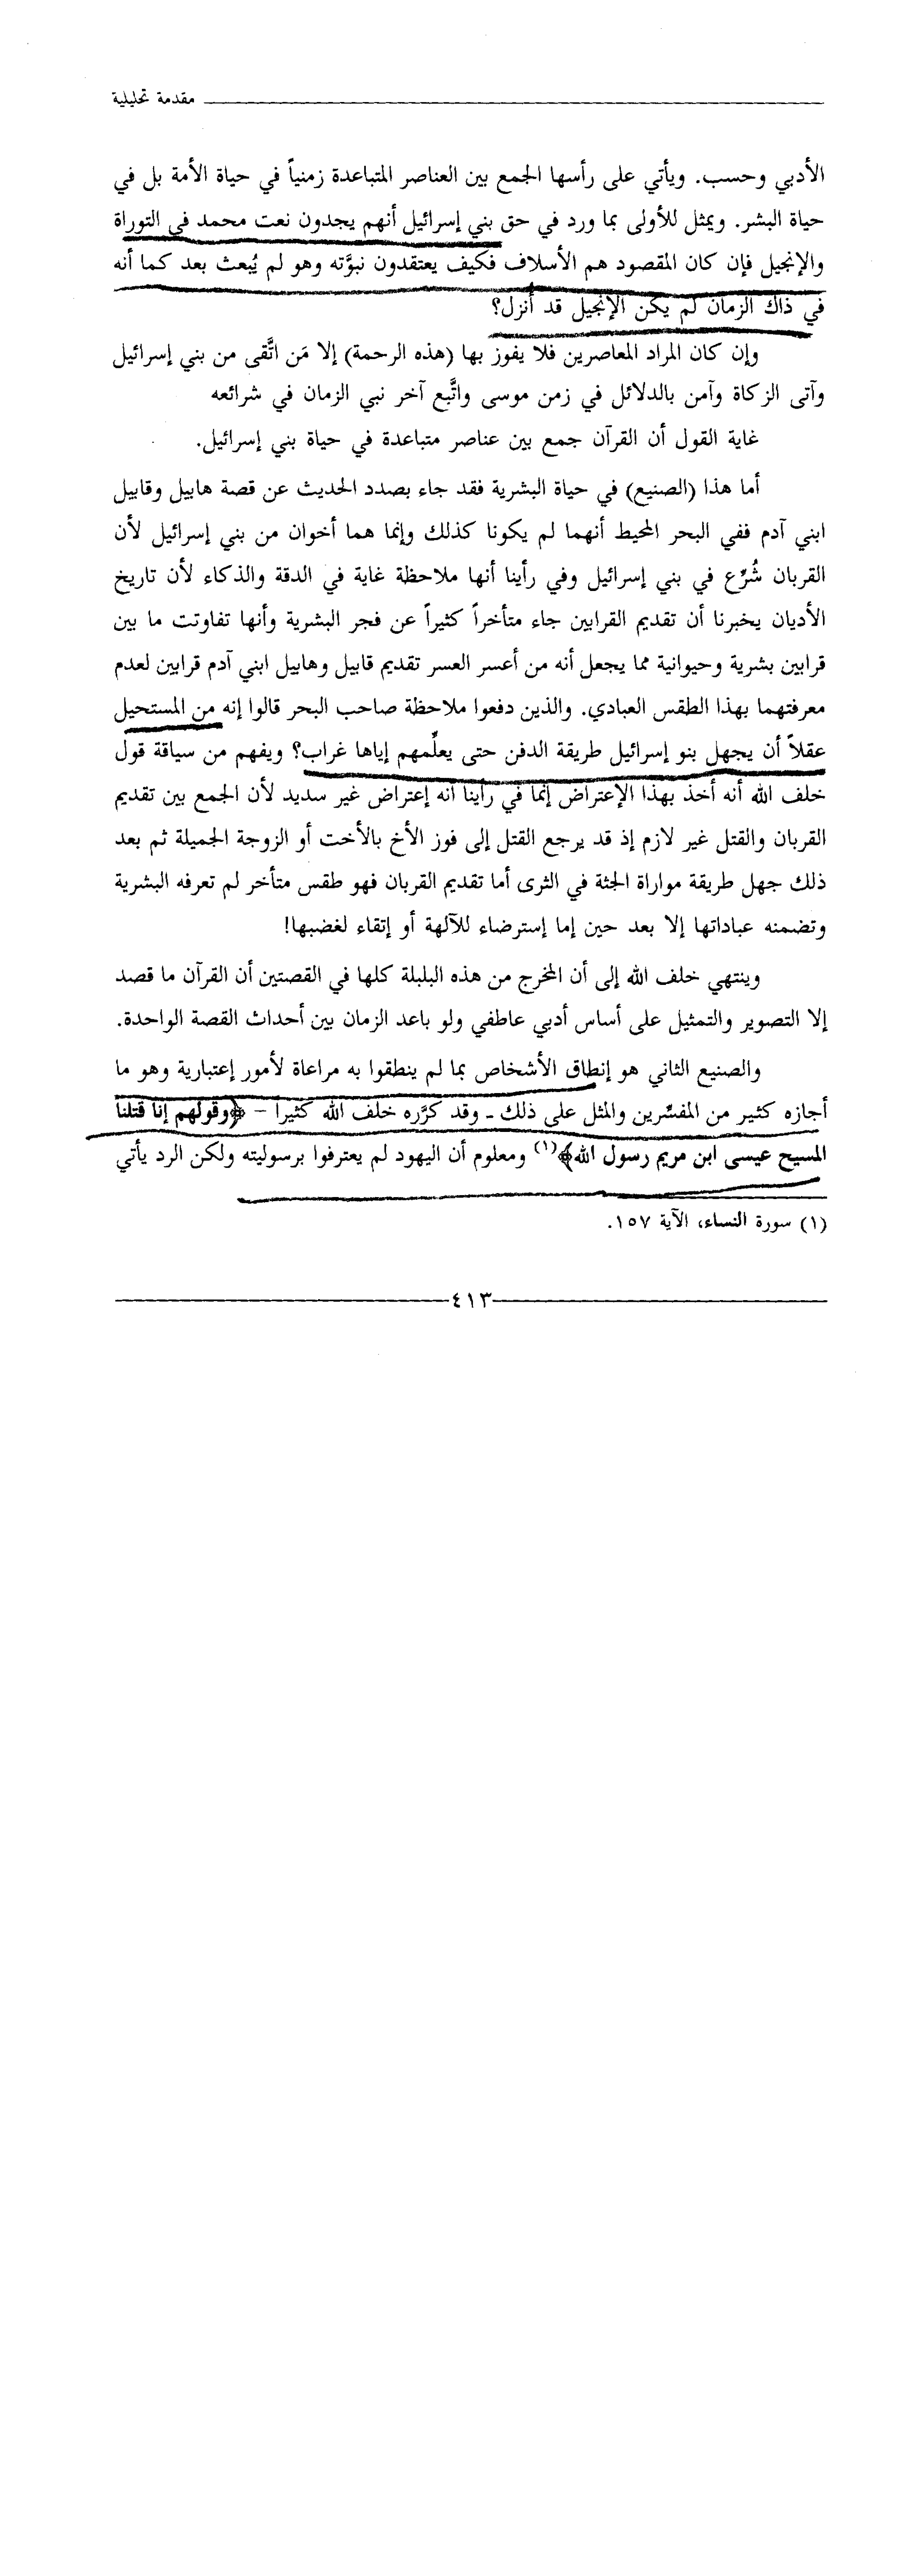 مقدمة تحليلية
الأدبي وحسب. ويأتي على رأسها الجمع بين العناصر المتباعدة زمنياً في حياة الأمة بل في
حياة البشر. ويمثل للأولى بما ورد في حق بني إسرائيل أنهم يجدون نعت محمد في التوراة
والإنجيل فإن كان المقصود هم الأسلاف فكيف يعتقدون نبوَّته وهو لم يُبعث بعد كما أنه
في ذاك الزمان لم يكن الإنجيل قد أُنزل؟
وإن كان المراد المعاصرين فلا يفوز بها (هذه الرحمة) إلا مَن اتَّقى من بني إسرائيل
وآتى الزكاة وآمن بالدلائل في زمن موسى واتَّبع آخر نبي الزمان في شرائعه
غاية القول أن القرآن جمع بين عناصر متباعدة في حياة بني إسرائيل.
أما هذا (الصنيع) في حياة البشرية فقد جاء بصدد الحديث عن قصة هابيل وقابيل
ابني آدم ففي البحر المحيط أنهما لم يكونا كذلك وإنما هما أخوان من بني إسرائيل لأن
القربان شُرِّع في بني إسرائيل وفي رأينا أنها ملاحظة غاية في الدقة والذكاء لأن تاريخ
الأديان يخبرنا أن تقديم القرابين جاء متأخراً كثيراً عن فجر البشرية وأنها تفاوتت ما بين
قرابين بشرية وحيوانية مما يجعل أنه من أعسر العسر تقديم قابيل وهابيل ابني آدم قرابين لعدم
معرفتهما بهذا الطقس العبادي. والذين دفعوا ملاحظة صاحب البحر قالوا إنه من المستحيل
عقلاً أن يجهل بنو إسرائيل طريقة الدفن حتى يعلِّمهم إياها غراب؟ ويفهم من سياقة قول
خلف الله أنه أخذ بهذا الإعتراض إنما في رأينا أنه إعتراض غير سديد لأن الجمع بين تقديم
القربان والقتل غير لازم إذ قد يرجع القتل إلى فوز الأخ بالأخت أو الزوجة الجميلة ثم بعد
ذلك جهل طريقة مواراة الجثة في الثرى أما تقديم القربان فهو طقس متأخر لم تعرفه البشرية
وتضمنه عباداتها إلا بعد حين إما إسترضاء للآلهة أو إتقاء لغضبها!
وينتهي خلف الله إلى أن المخرج من هذه البلبلة كلها في القصتين أن القرآن ما قصد
إلا التصوير والتمثيل على أساس أدبي عاطفي ولو باعد الزمان بين أحداث القصة الواحدة.
والصنيع الثاني هو إنطاق الأشخاص بما لم ينطقوا به مراعاة لأمور إعتبارية وهو ما
أجازه كثير من المفسِّرين والمثل على ذلك ـ وقد كرَّره خلف الله كثيراً – ﴿وقولهم إنا قتلنا
المسيح عيسى ابن مريم رسول الله﴾(١) ومعلوم أن اليهود لم يعترفوا برسوليته ولكن الرد يأتي
(١) سورة النساء، الآية ١٥٧.
٤١٣